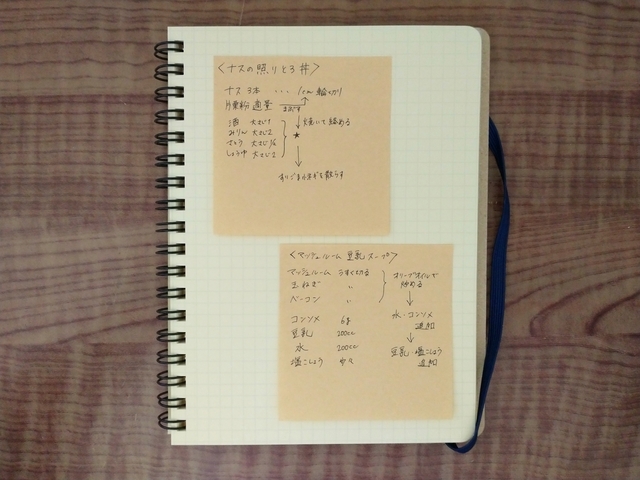 <ナスの照りとろ丼>
ナス 3本 ・・・ 1cm 輪切り
片栗粉 適量 まぶす
酒 大さじ1
みりん 大さじ2
さとう 大さじ1/2
しょうゆ 大さじ2
焼いて絡める
★
すりごま・ネギを散らす
<マッシュルーム 豆乳スープ>
マッシュルーム うすく切る
玉ねぎ 〃
ベーコン 〃
オリーブオイルで
炒める
コンソメ
豆乳 200cc
水 200cc
塩こしょう 少々
水・コンソメ
追加
豆乳 塩こしょう
追加